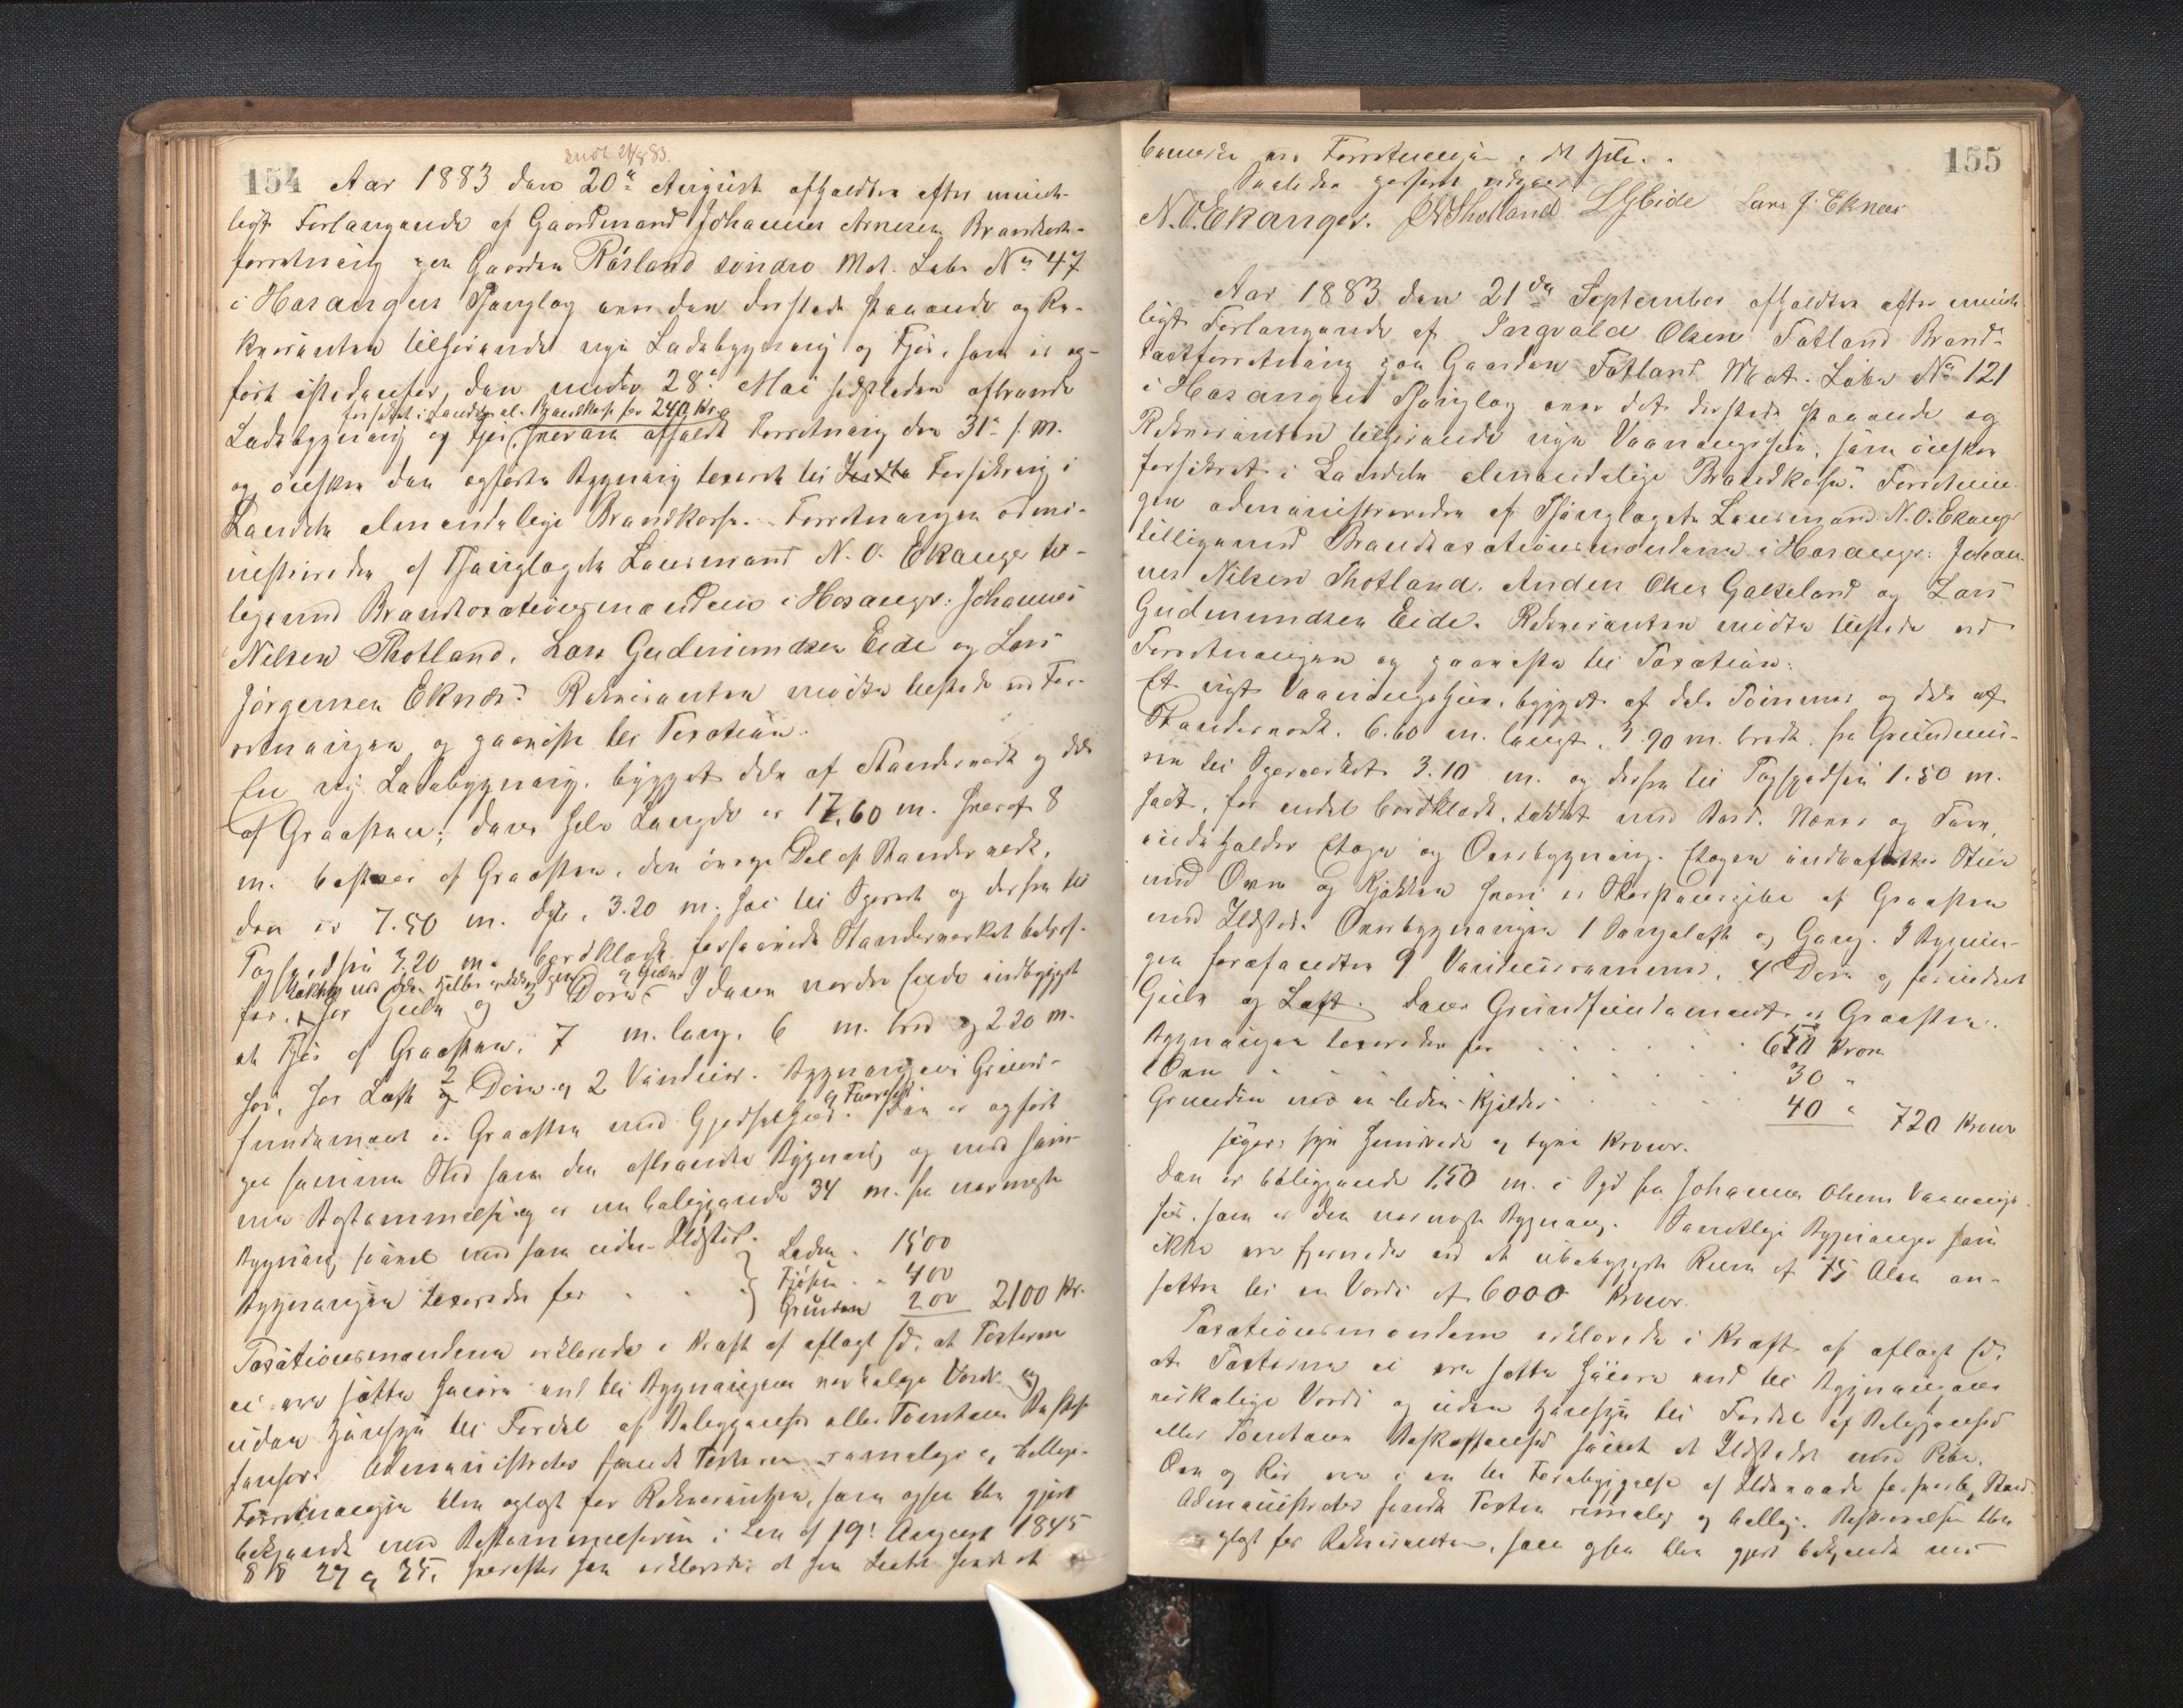 154
sendt 21/8 83.
Aar 1883 den 20de August afholdtes efter mundt-
ligt Forlangende af Gaardmand Johannes Arnesen Brandtaxt-
forretning paa Gaarden Røsland søndre Mat. Løbe No 47
i Hosanger Thinglag over den dersteds staaende og Re-
kvirenten tilhørende nye Ladebygning og Fjøs, som er op-
ført istedenfor den under 28de Mai sidstleden afbrændte
forsikret i Landets al. Brandkasse for 240 Kr.
Ladebygning og Fjøs, hvorom afholdt Forretning den 31te s. M.
og ønskes den opførte Bygning taxeret til Forsikring i
Landets almindelige Brandkasse. Forretningen admi-
nistreredes af Thinglagets Lensmand N. O. Ekanger til-
ligemed Brandtaxationsmændene i Hosanger: Johannes
Nilsen Thotland, Lars Gudmundsen Eide og Lars
Jørgensen Eknæs. Rekvirenten mødte tilstede ved For-
retningen og paaviste til Taxation:
En ny Ladebygning, bygget dels af Standerværk og dels
af Graasten; dens hele Længde er 17,60 m. hvoraf 8
m. bestaar af Graasten, den øvrige Del af Standerværk,
den er 7.50 m. dyb, 3.20 m. høi til Sperret og derfra til
Tagspidsen 3.20 m. bordklædt forsaavidt Standerværket betræf-
fer, har Gulv og 3 Døre. I dens nordre Ende indbygget
et Fjøs af Graasten, 7 m. lang, 6 m. bred og 2.20 m.
høi, har Loft 2 Døre og 2 Vinduer. Bygningens Grund-
fundament er Graasten med Gjødselhus. Den er opført
paa samme Sted som den afbrændte Bygning og med sam-
me Bestemmelse og er beliggende 34 m. fra nærmeste
Bygning saavel med som uden Ildsted.
Bygningen taxeredes for . . . Laden . 1500
Fjøsen . . 400
Grunden 200 2100 Kr.
Taxationsmændene erklærede i Kraft af aflagt Ed, at Taxterne
ei ere satte høiere end til Bygningens virkelige Værdi og
uden Hensyn til Fordel af Beliggenhed eller Tomtens Beskaf-
fenhed. Administrator fandt Taxterne rimelige og billige.
Forretningen blev oplæst for Rekvirenten, som ogsaa blev gjort
bekjendt med Bestemmelserne i Lov af 19de August 1845
§ § 27 og 35, hvorefter han erklærede at han Intet havde at
155
bemærke ved Forretningen i det Hele.
Saaledes passeret udgaaer
N. O. Ekanger. JNThotland LGEide Lars J. Eknæs
Aar 1883 den 21de September afholdtes efter mundt-
ligt Forlangende af Ingvald Olsen Fatland Brand-
taxtforretning paa Gaarden Fatland Mat. Løbe No 121
i Hosanger Thinglag over det dersteds staaende og
Rekvirenten tilhørende nye Vaaningshus, som ønskes
forsikret i Landets almindelige Brandkasse. Forretnin-
gen administreredes af Thinglagets Lensmand N. O. Ekanger
tilligemed Brandtaxationsmændene i Hosanger: Johan-
nes Nilsen Thotland, Anders Olsen Galteland og Lars
Gudmundsen Eide. Rekvirenten mødte tilstede ved
Forretningen og paaviste til Taxation:
Et nyt Vaaningshus, bygget af dels Tømmer og dels af
Standerværk, 6.60 m. langt, 3.90 m. bredt, fra Grundmu-
ren til Sperverket 3.10 m. og derfra til Tagspidsen 1.50 m.
høit, for endel bordklædt, tækket med Bord, Næver og Torv,
indeholder Etage og Overbygning. Etagen indbefatter Stue
med Ovn og Kjøkken hvori er Skorstenspibe af Graasten
med Ildsted. Overbygningen 1 Sengeloft og Gang. I Bygnin-
gen forefindtes 9 Vinduesrammer, 4 Døre og forøvrigt
Gulv og Loft. Dens Grundfundament er Graasten.
Bygningen taxeredes for . . . . . 650 Kroner
Ovn . . . . . 30 "
Grunden med en liden Kjelder . . . . 40 " 720 Kroner
siger syv hundrede og tyve Kroner.
Den er beliggende 1.50 m. i Syd fra Johannes Olsens Vaanings-
hus, som er den nærmeste Bygning. Samtlige Bygninger som
ikke ere fjernede ved et ubebygget Rum af 75 Alen an-
sættes til en Værdi af 6000 Kroner.
Taxationsmændene erklærede i Kraft af aflagt Ed,
at Taxterne ei ere satte høiere end til Bygningens
virkelige Værdi og uden Hensyn til Fordel af Beliggenhed
eller Tomtens Beskaffenhed samt at Ildstedet med Pibe,
Ovn og Rør ere i en til Forebyggelse af Ildsvaade forsvarlig Stand.
Administrator fandt Taxten rimelig og billig. Beskrivelsen blev
oplæst for Rekvirenten, som ogsaa blev gjort bekjendt med